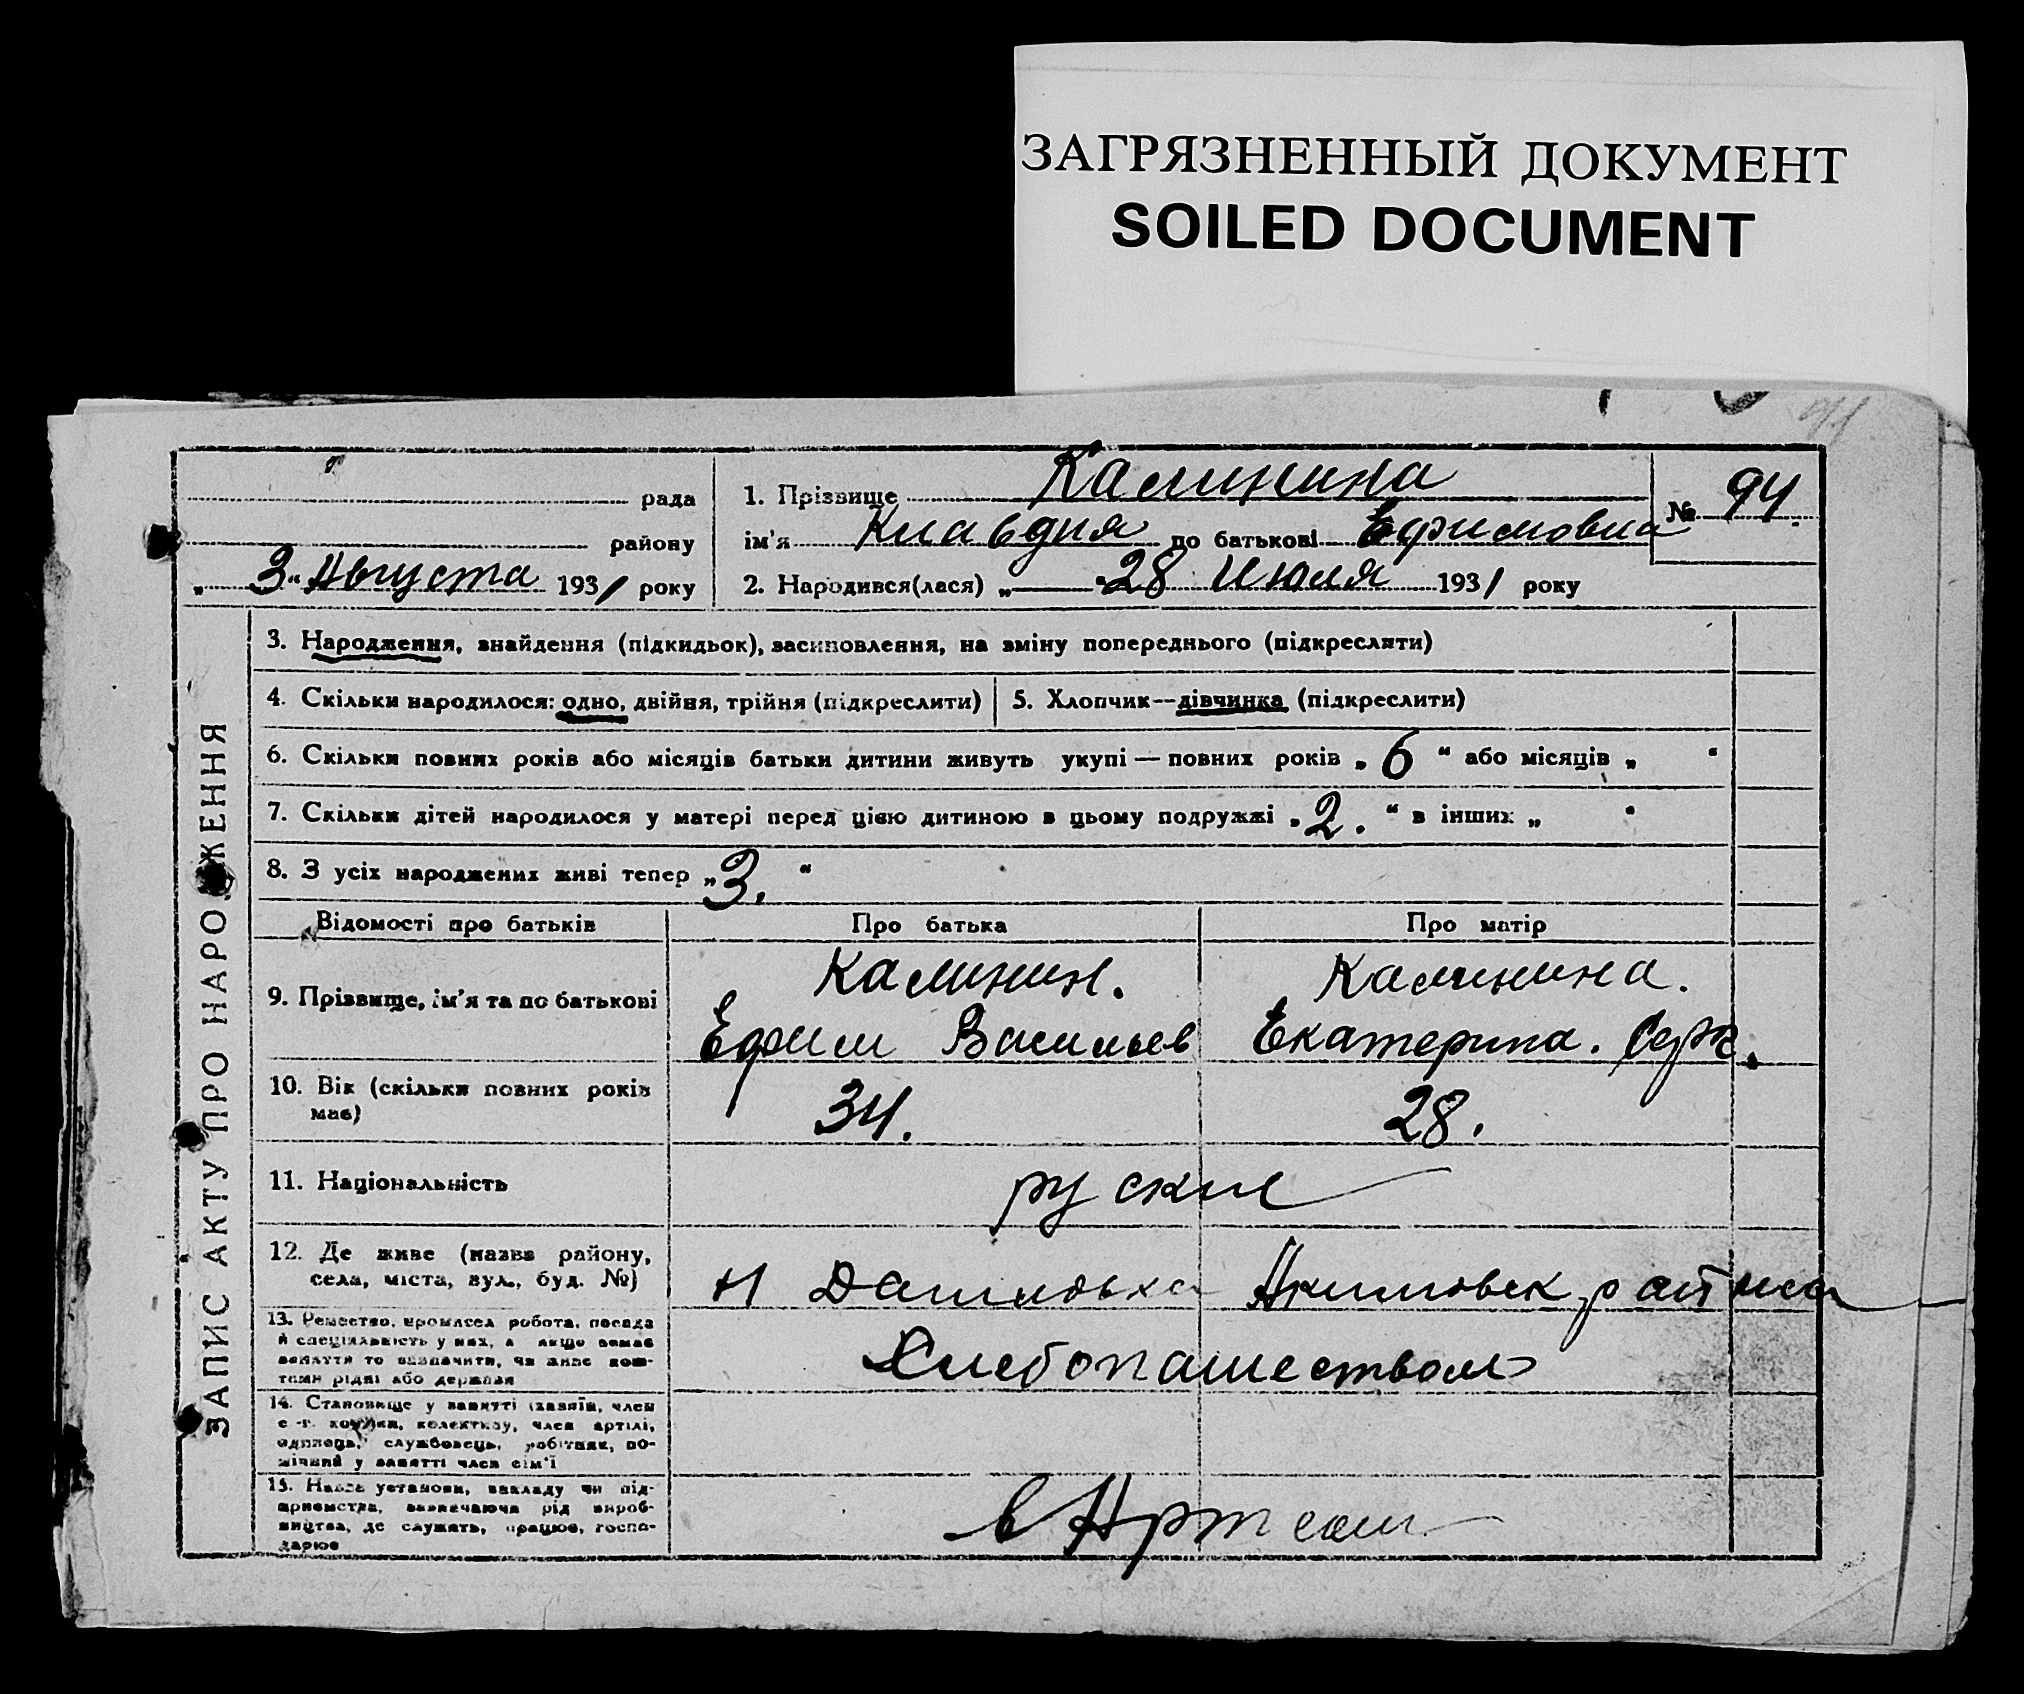 ЗАГРЯЗНЕННЫЙ ДОКУМЕНТ
SOILED DOCUMENT
рада
району
„ 3 “ Августа 1931 року
1. Прізвище Калинина
ім'я Клавдия по батькові Ефимовна
№ 94.
2. Народився(лася) „ 28 Июля 1931 року
ЗАПИС АКТУ ПРО НАРОДЖЕННЯ
3. Народження, знайдення (підкидьок), засиновлення, на зміну попереднього (підкреслити)
4. Скільки народилося: одно, двійня, трійня (підкреслити)
5. Хлопчик—дівчинка (підкреслити)
6. Скільки повних років або місяців батьки дитини живуть укупі — повних років „ 6 “ або місяців „ “
7. Скільки дітей народилося у матері перед цією дитиною в цьому подружжі „ 2. “ в інших „ “
8. З усіх народжених живі тепер „ 3. “
Відомості про батьків
Про батька
Про матір
9. Прізвище, ім'я та по батькові
Калинин.
Ефим Васильев
Калинина.
Екатерина.
10. Вік (скільки повних років
має)
34.
28.
11. Національність
руские
12. Де живе (назва району,
села, міста, вул., буд. №)
Акимовск района
13. Ремество, промисел робота, посада
й спеціяльність у них, а якщо немає
заняття то зазначити, чи живе кош-
тами рідні або держави
Хлебопашеством
14. Становище у занятті (хазяїн, член
с.-г. комуни, колективу, член артілі,
одинець, службовець, робітник, по-
мічний у занятті член сім'ї
15. Назва установи, закладу чи під-
приємства, зазначаючи рід вироб-
ництва, де служить, працює, госпо-
дарює
в Арт сам